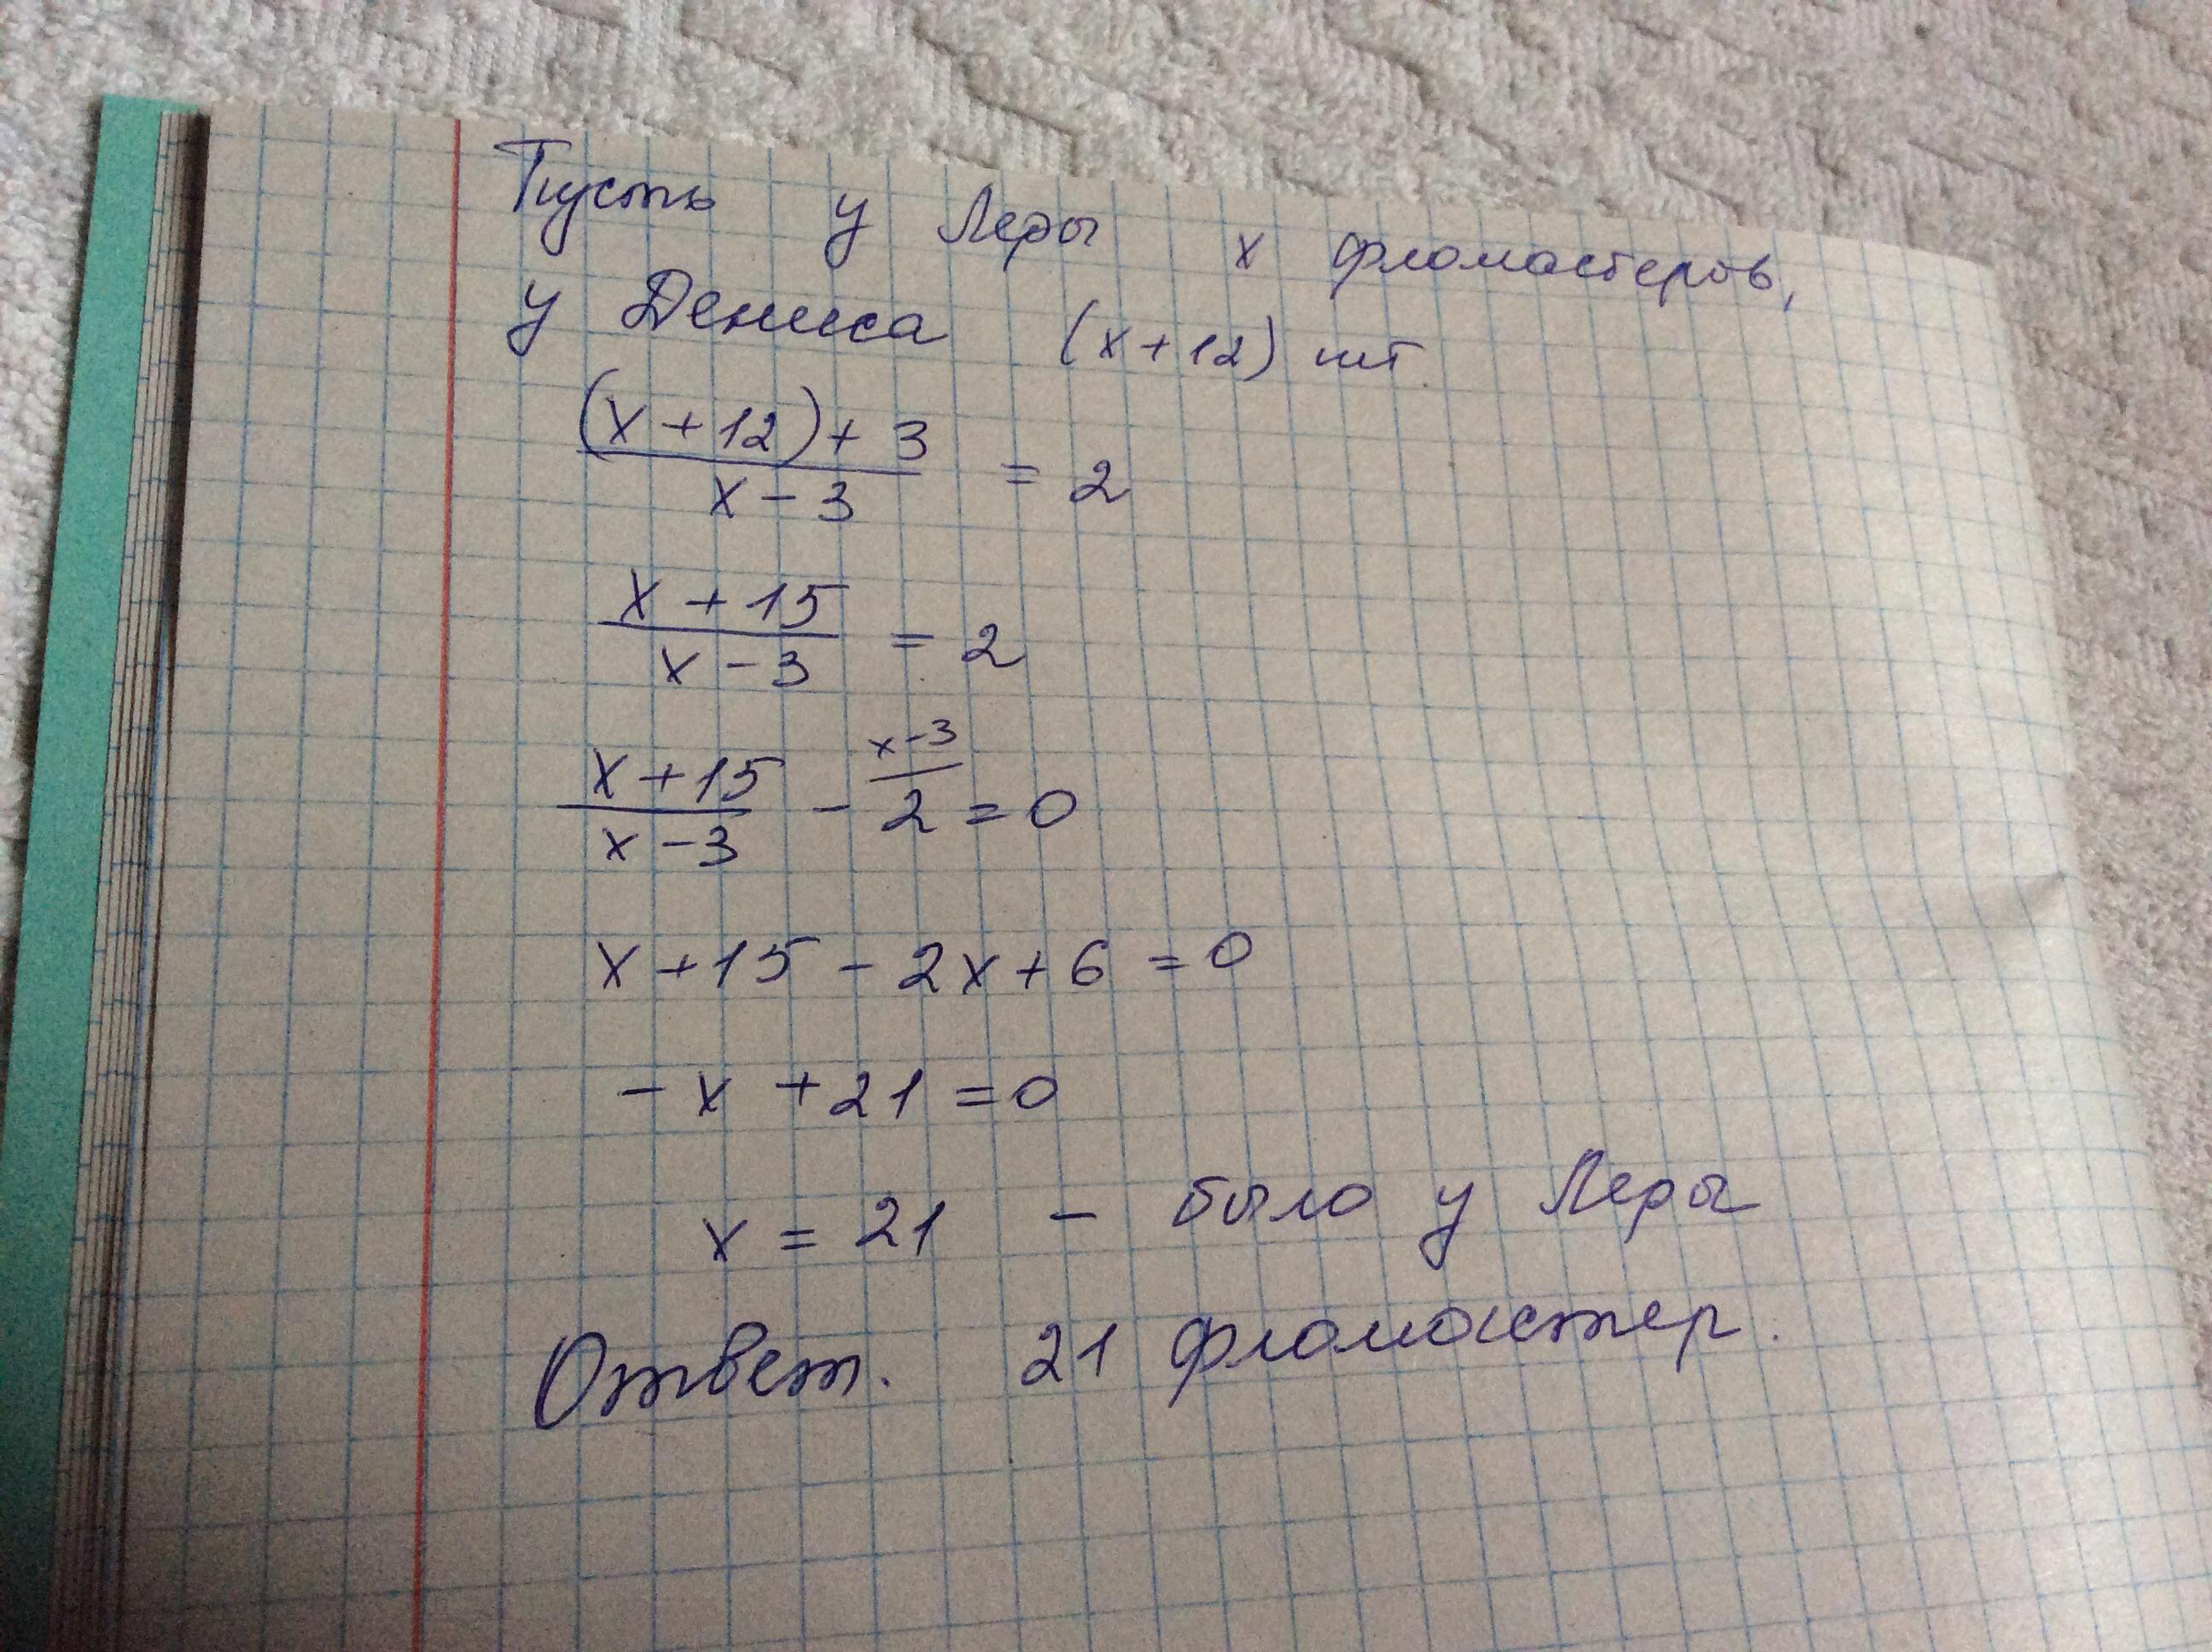 Пусть у Леры x фломастеров,
у Дениса (x+12) шт.
(x+12)+3
x-3
= 2
x+15
x-3
= 2
x+15
x-3
-
x-3
2 = 0
x+15-2x+6=0
-x+21=0
x=21 - было у Леры
Ответ. 21 фломастер.